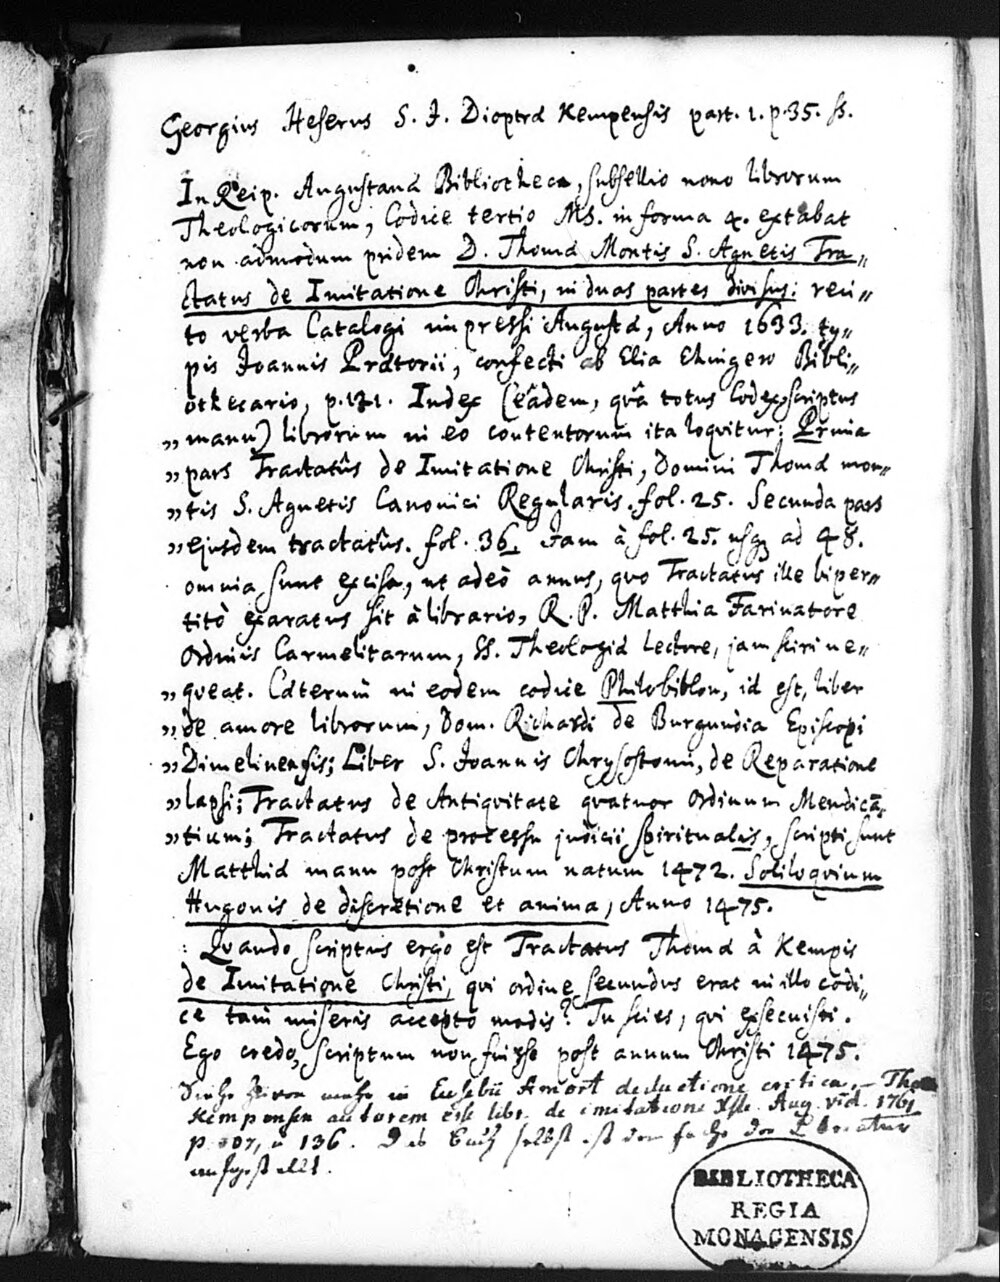 Georgius Heserus S. J. Dioptrâ Kempensis part. 1. p. 35. ss.
In Reip. Augustanâ Bibliotheca, subsellio nono librorum
Theologicorum, Codice tertio MS. in forma 4. extabat
non admodum pridem D. Thomæ Montis S. Agnetis Tra„
ctatus de Imitatione Christi, in duas partes divisus: reci„
to verba Catalogi impressi Augustæ, Anno 1633. ty„
pis Joannis Prætorii, confecti ab Elia Ehingero Bibli„
othecario, p. 121. Index (eâdem, quâ totus Codex scriptus
„ manu) librorum in eo contentorum ita loqvitur: Prima
„ pars Tractatûs de Imitatione Christi, Domini Thomæ mon„
„ tis S. Agnetis Canonici Regularis. fol. 25. Secunda pars
„ ejusdem tractatûs. fol. 36. Jam à fol. 25. usq ad 48.
omnia sunt excisa, ut adeò annus, quo Tractatus ille biper„
titò exaratus sit à librario, R. P. Matthia Farinatore
Ordinis Carmelitarum, SS. Theologiæ Lectore, jam sciri ne„
„ queat. Cæterum in eodem codice Philobiblon, id est, liber
„ de amore librorum, Dom. Richardi de Burgundia Episcopi
„ Dimelinensis; Liber S. Joannis Chrysostomi, de Reparatione
„ lapsi; Tractatus de Antiqvitate quatuor Ordinum Mendicā,
„ tium; Tractatus de processu judicii Spiritualis, scripti sunt
Matthiæ manu post Christum natum 1472. Soliloqvium
Hugonis de discretione et anima, Anno 1475.
Quando scriptus ergo est Tractatus Thomæ à Kempis
de Imitatione Christi, qui ordine secundus erat in illo codi„
ce tam miseris accepto modis? Tu scies, qui exsecuisti.
Ego credo, scriptum non fuisse post annum Christi 1475.
Siehe hievon mehr in Eusebii Amort deductione critica,
Kempensem autorem esse libr. de imitatione Xsti. Aug. Vid. 1761
p. 107, u 136. Das Buch selbst ist dem Fache der Literatur
BIBLIOTHECA
REGIA
MONACENSIS